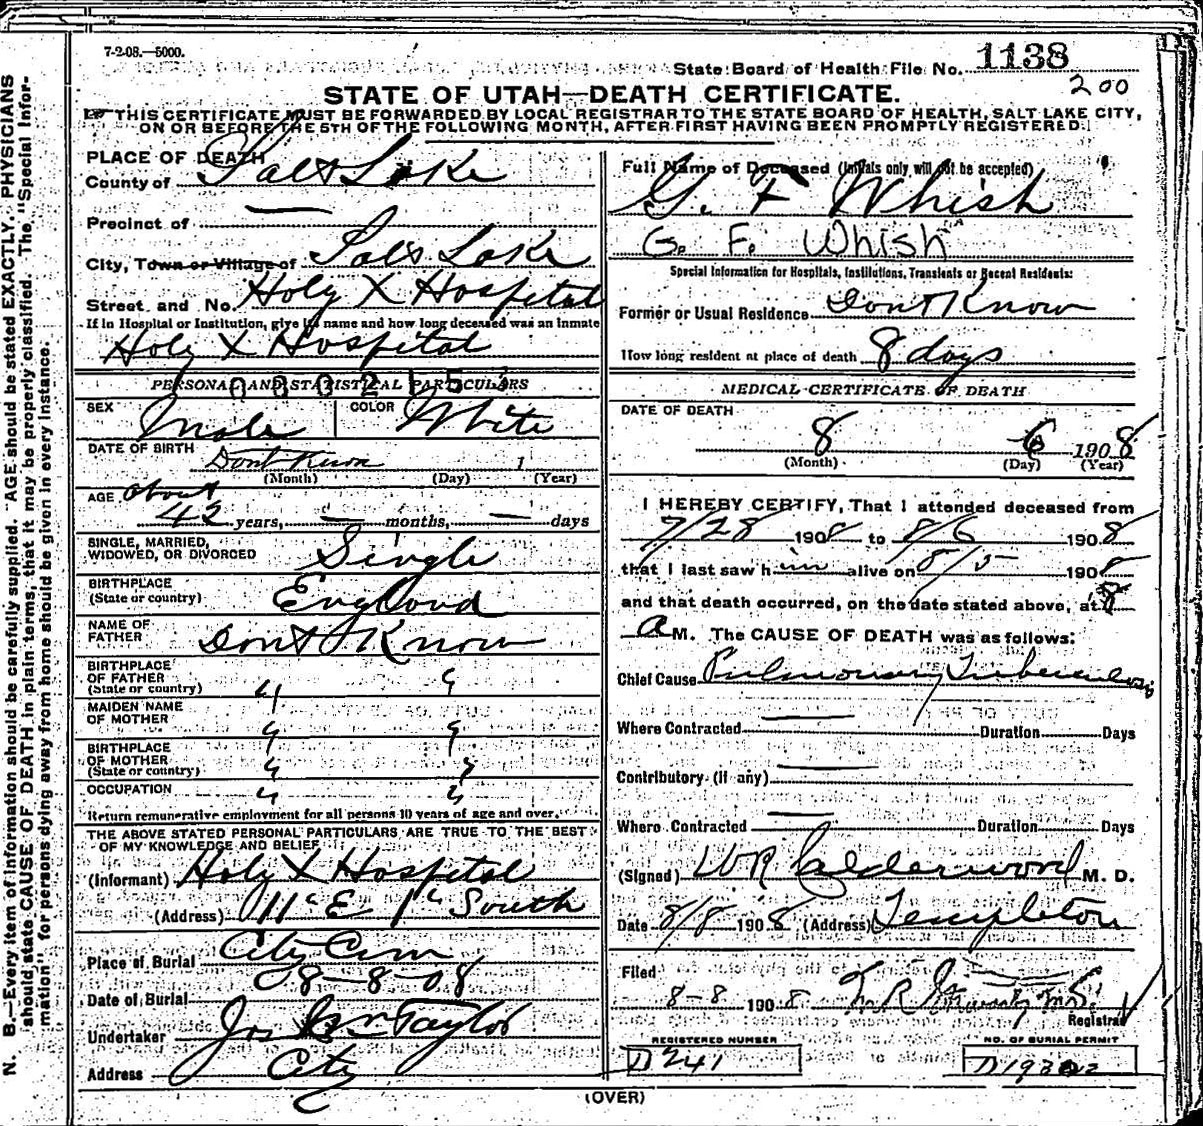 7-2-08.—5000.
State Board of Health File No. 1138
200
STATE OF UTAH—DEATH CERTIFICATE.
THIS CERTIFICATE MUST BE FORWARDED BY LOCAL REGISTRAR TO THE STATE BOARD OF HEALTH, SALT LAKE CITY,
ON OR BEFORE THE 5TH OF THE FOLLOWING MONTH, AFTER FIRST HAVING BEEN PROMPTLY REGISTERED.
PLACE OF DEATH
County of Salt Lake
Precinct of —
City, Town or Village of Salt Lake
Street and No. Holy X Hospital
If in Hospital or Institution, give its name and how long deceased was an inmate
Holy X Hospital
PERSONAL AND STATISTICAL PARTICULARS
SEX Male COLOR White
DATE OF BIRTH Dont Know 1
(Month) (Day) (Year)
AGE about
42 years, — months, — days
SINGLE, MARRIED,
WIDOWED, OR DIVORCED Single
BIRTHPLACE
(State or country) England
NAME OF
FATHER Dont Know
BIRTHPLACE
OF FATHER
(State or country) " "
MAIDEN NAME
OF MOTHER " "
BIRTHPLACE
OF MOTHER
(State or country) " "
OCCUPATION " "
Return remunerative employment for all persons 10 years of age and over.
THE ABOVE STATED PERSONAL PARTICULARS ARE TRUE TO THE BEST
OF MY KNOWLEDGE AND BELIEF
(Informant) Holy X Hospital
(Address) 11th E 1st South
Place of Burial City Cem
Date of Burial 8-8-08
Undertaker Jos Wm Taylor
Address City
Full Name of Deceased (Initials only will not be accepted)
G. F Whish
G. F. Whish
Special Information for Hospitals, Institutions, Transients or Recent Residents:
Former or Usual Residence Dont Know
How long resident at place of death 8 days
MEDICAL CERTIFICATE OF DEATH
DATE OF DEATH
8 6 1908
(Month) (Day) (Year)
I HEREBY CERTIFY, That I attended deceased from
7/28 1908 to 8/6 1908
that I last saw him alive on 8/5 1908
and that death occurred, on the date stated above, at 8
A M. The CAUSE OF DEATH was as follows:
Chief Cause Pulmonary Tuberculosis
Where Contracted — Duration Days
Contributory (if any) —
Where Contracted — Duration Days
(Signed) WR Calderwood M. D.
Date 8/8 1908 (Address) Templeton
Filed
8-8 1908
Registrar
REGISTERED NUMBER
D241
NO. OF BURIAL PERMIT
(OVER)
N. B.—Every item of information should be carefully supplied. AGE should be stated EXACTLY. PHYSICIANS
should state CAUSE OF DEATH in plain terms, that it may be properly classified. The "Special Infor-
mation" for persons dying away from home should be given in every instance.